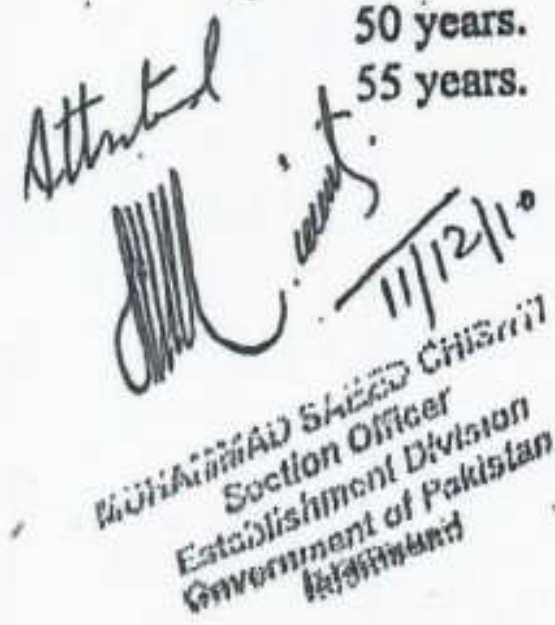 50 years.
55 years.
Attested
11/12/10
MUHAMMAD SAEED CHISHTI
Section Officer
Establishment Division
Government of Pakistan
Islamabad